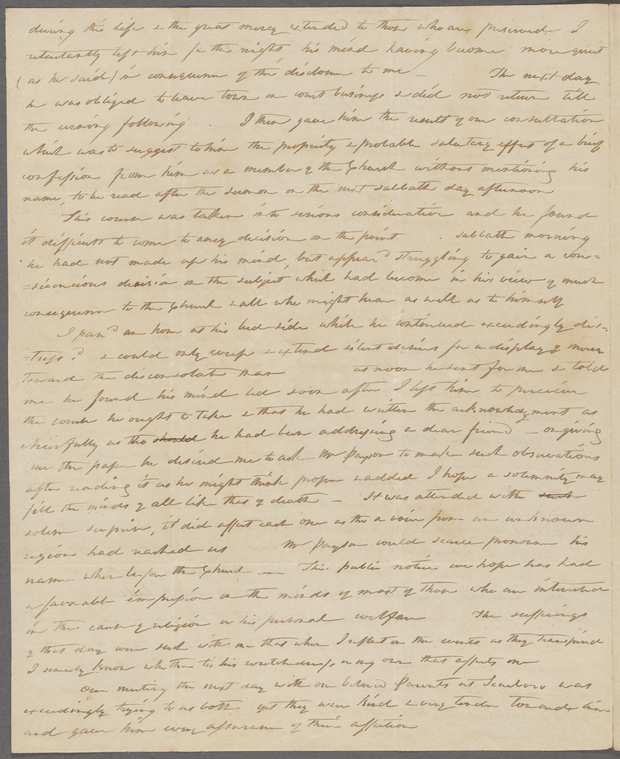 during this life & the great mercy extended to those who are preserved. I
reluctantly left him for the night his mind having become more quiet
(as he said) in consequence of the disclosure to me – The next day
he was obliged to leave town on court business & did not return till
the evening following. I then gave him the result of our consultation
which was to suggest to him the propriety & probable salutary effect of a brief
confession from him as a member of the Church without mentioning his
name, to be read after the sermon on the next sabbath day afternoon
This course was taken into serious consideration and he found
it difficult to come to any decision on the point. Sabbath morning
he had not made up his mind but appear'd struggling to gain a con=
=sciencious decision on the subject which had become in his view of much
consequence to the Church & all who might hear as well as to himself
I pass'd an hour at his bed side while he continued exceedingly dis=
=tress'd & could only weep & extend silent desires for a display of mercy
toward the disconsolate man at noon he sent for me & told
me he found his mind led soon after I left him to perceive
the course he ought to take & that he had written the acknowledgment as
cheerfully as tho should he had been addressing a dear friend – on giving
me the paper he desired me to ask Mr Payson to make such observations
after reading it as he might think proper & added I hope a solemnity may
fill the minds of all like that of death – It was attended with such
solemn surprise, it did affect each one as tho a voice from an unknown
region had reached us Mr Payson could scarce pronounce his
name when before the Church — This public notice we hope has had
a favorable impression on the minds of most of those who are interested
in the cause of religion or his personal welfare The sufferings
of that day were such with me that when I reflect on the events as they transpired
I scarcely know whether tis his wretchedness or my own that affects me
Our meeting the next day with our beloved Parents at Scarboro was
exceedingly trying to us both yet they were kind & very tender towards him
and gave him every assurance of their affection